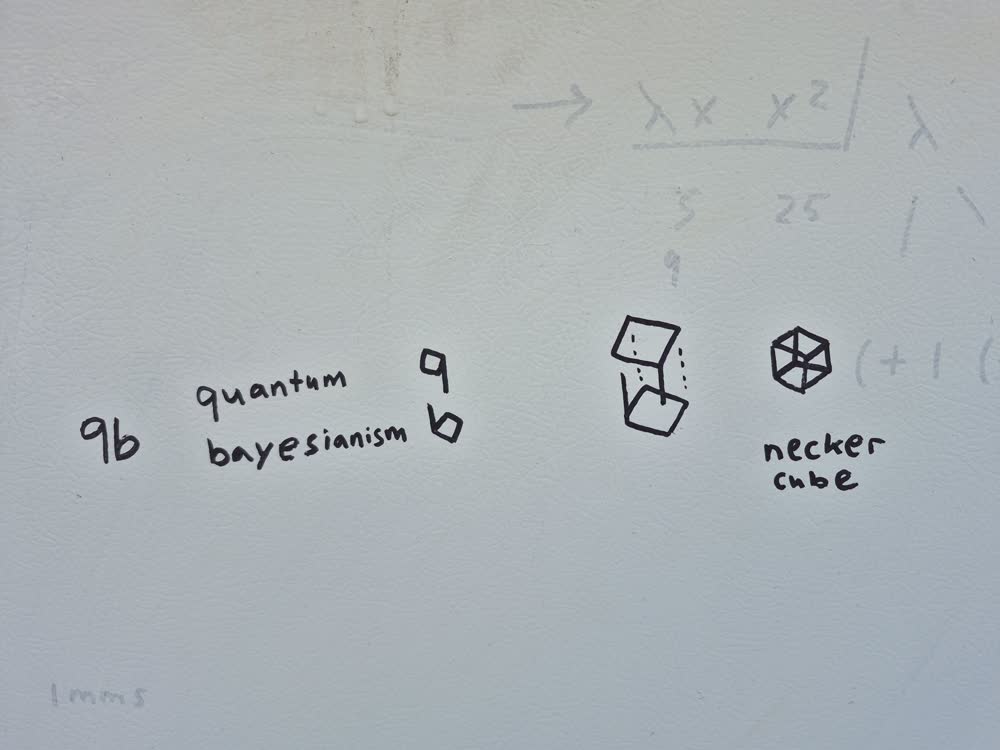 → λx x²
λ
5 25
9
q
quantum
qb
bayesianism
b
(+ 1 (
necker
cube
1mms